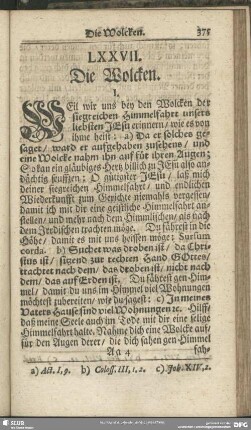 Die Wolcken. 375
LXXVII.
Die Wolcken.
I.
WEil wir uns bey den Wolcken der
siegreichen Himmelfahrt unsers
liebsten JEsu erinnern, wie es von
ihme heist: a) Da er solches ge-
saget, ward er aufgehaben zusehens, und
eine Wolcke nahm ihn auf für ihren Augen;
So kan ein gläubiges Hertz billich zu JEsu an-
dächtig seufftzen: O gütigster JEsu, laß mich
deiner siegreichen Himmelfahrt, und endlichen
Wiederkunfft zum Gerichte niemahls vergessen,
damit ich mit dir eine geistliche Himmelfahrt an-
stellen, und mehr nach dem Himmlischen, als nach
dem Irrdischen trachten möge. Du fährest in die
Höhe, damit es mit uns heissen möge: Sursum
corda. b) Suchet was droben ist, da Chri-
stus ist, sitzend zur rechten Hand GOttes,
trachtet nach dem, das droben ist, nicht nach
dem, das auf Erden ist. Du fährest gen Him-
mel, damit du uns im Himmel viel Wohnungen
möchtest zubereiten, wie du sagest: c) In meines
Vaters Hause sind viel Wohnungen ꝛc. Hilff,
daß meine Seele auch im Tode mit dir eine selige
Himmelfahrt halte. Nahme dich eine Wolcke auf,
für den Augen derer, die dich sahen gen Himmel
Aa 4 fah-
a) Act. I, 9. b) Coloss. III, 1. 2. c) Joh. XIV, 2.
SLUB
DFG